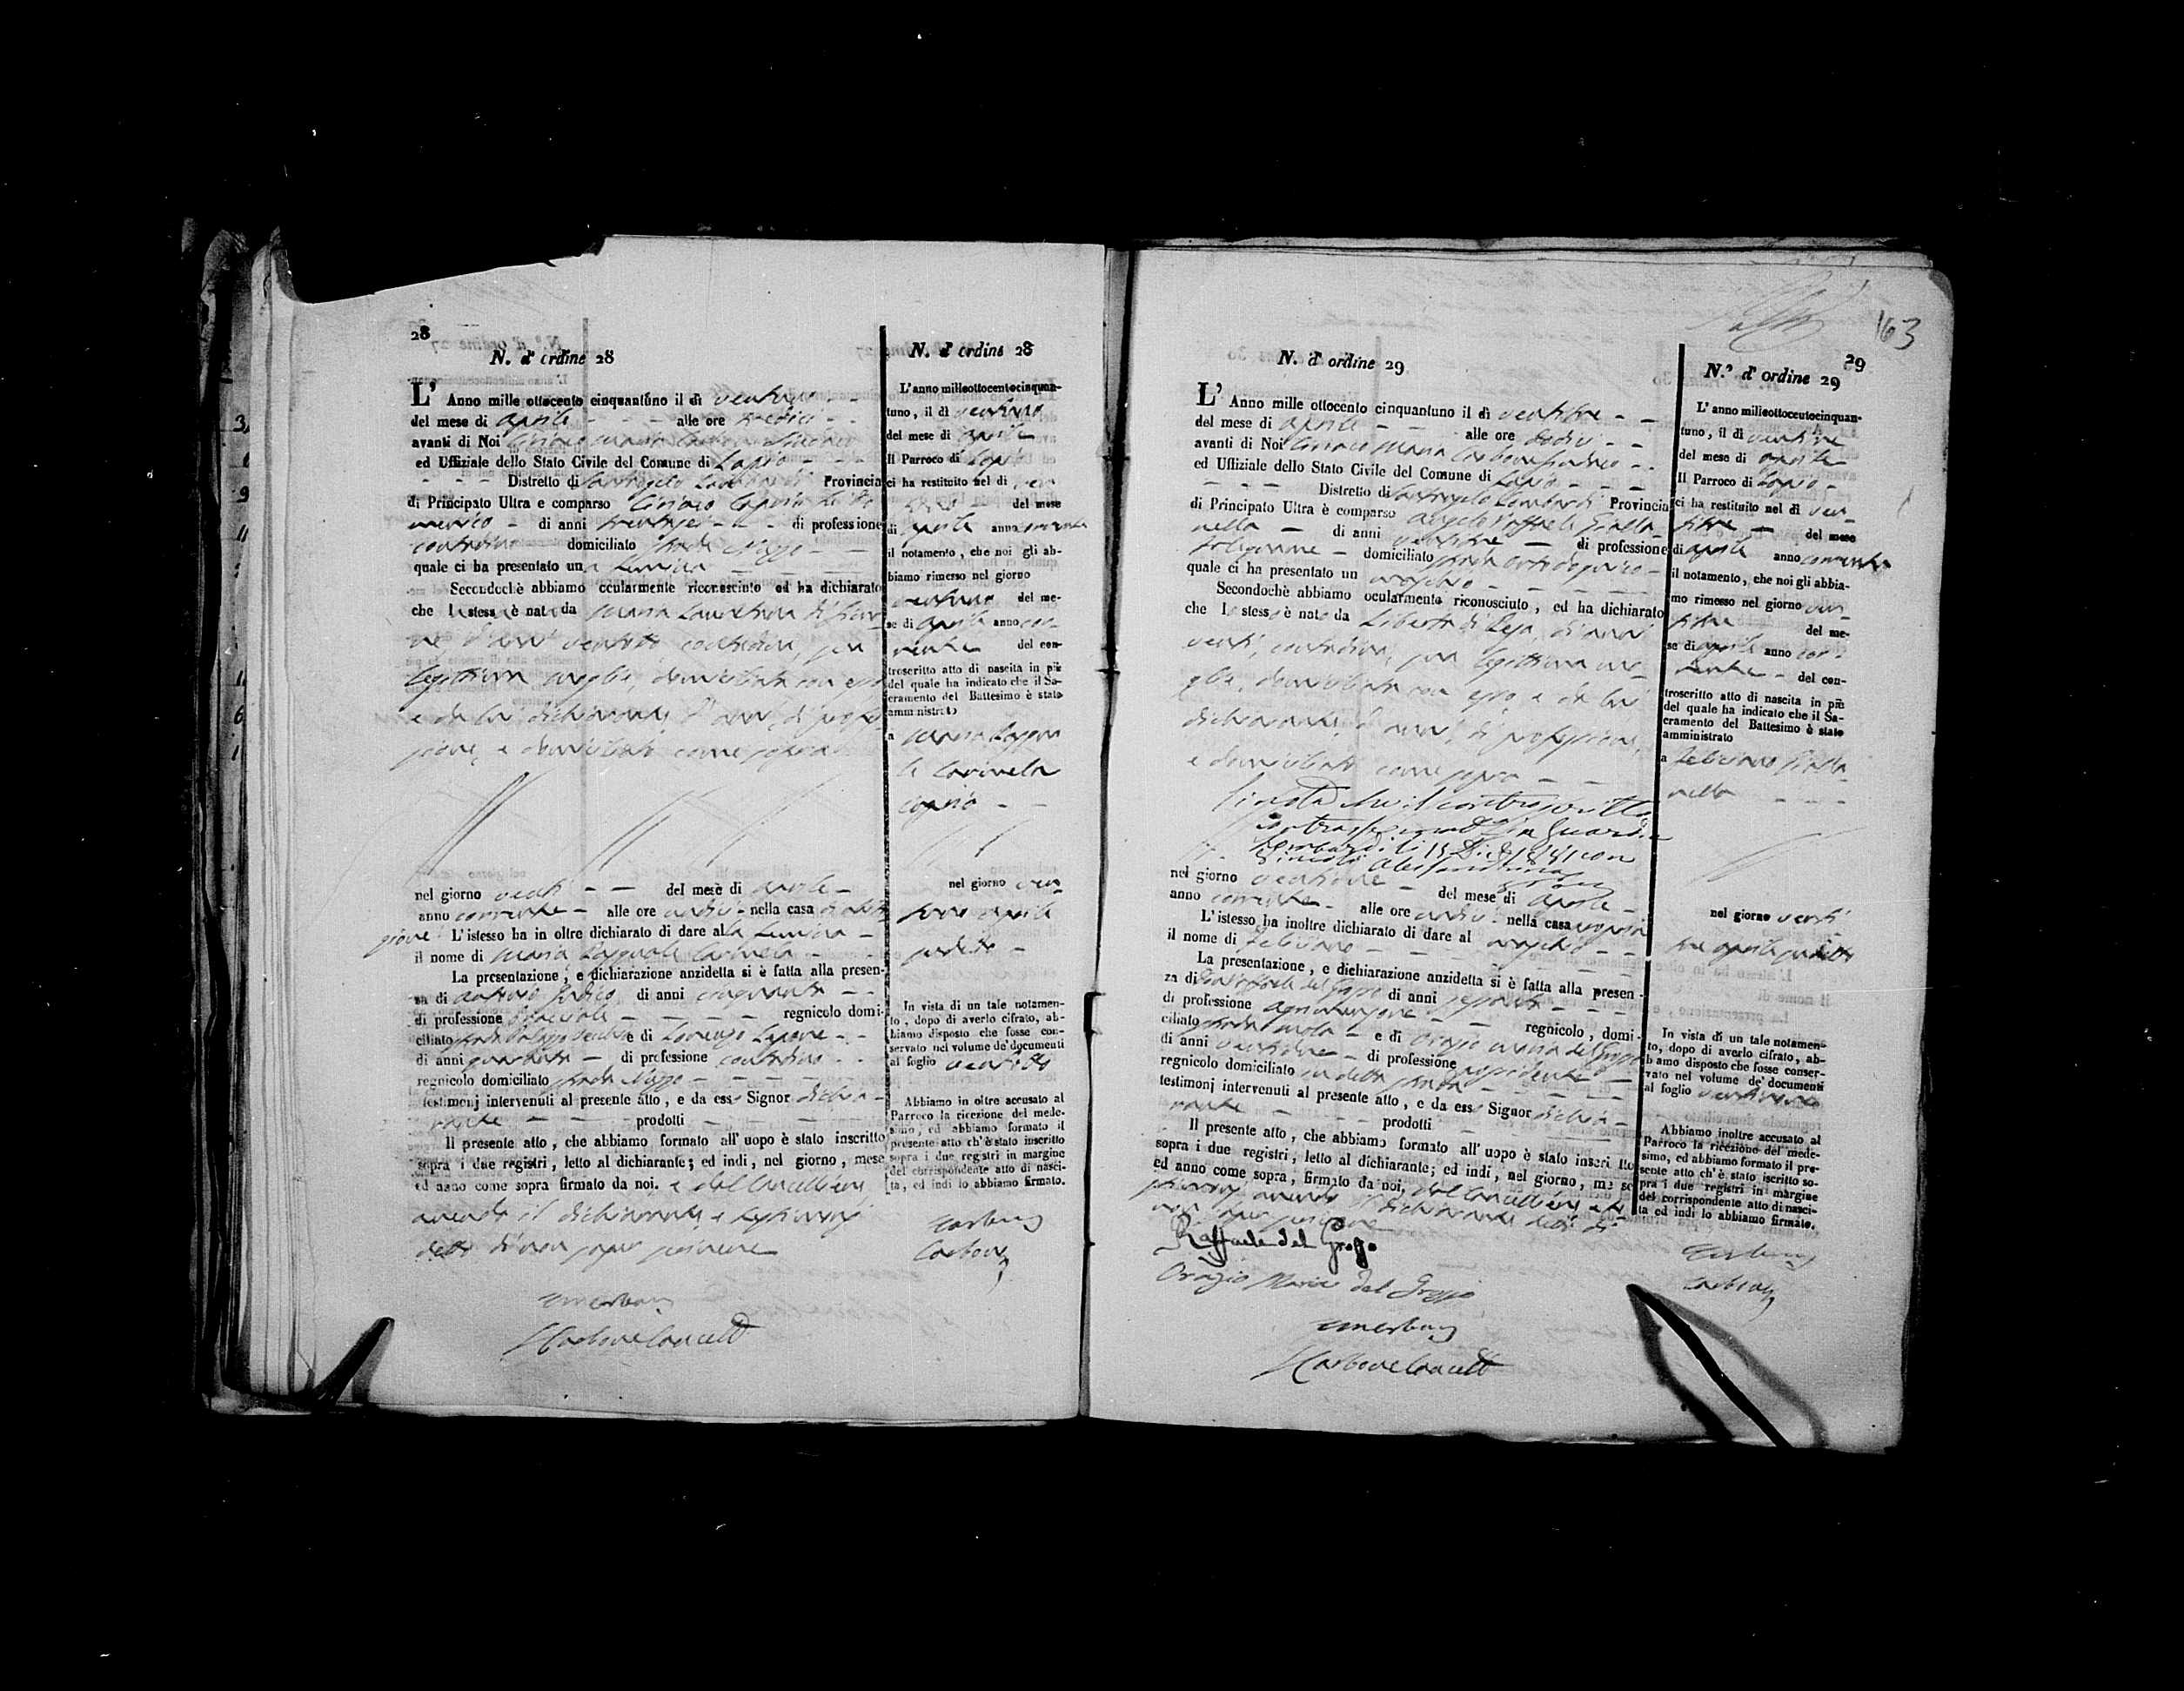 28
N. d' ordine 28
L' Anno mille ottocento cinquantuno il dì ventuno
del mese di aprile alle ore tredici
avanti di Noi Ciriaco Maria Carbone Sindaco
ed Uffiziale dello Stato Civile del Comune di Lapio
Distretto di Santangelo Lombardi Provincia
di Principato Ultra e comparso Ciriaco Caprio di Do
menico di anni trentasei di professione
contadino domiciliato strada
quale ci ha presentato una femina
Secondochè abbiamo ocularmente riconosciuto ed ha dichiarato
che la stessa è nata da Maria Laurenzia di
ne d'anni ventotto contadina, sua
legittima moglie, domiciliata con esso
e da lui dichiarante d'anni, di profes
sione, e domiciliato come sopra
nel giorno venti del mese di aprile
anno corrente alle ore undici nella casa di
L' istesso ha in oltre dichiarato di dare alla femina
il nome di Maria Pasquale Carmela
La presentazione, e dichiarazione anzidetta si è fatta alla presen-
za di Antonio di anni cinquanta
di professione regnicolo domi-
ciliato strada Palazzo e di Lorenzo Lepore
di anni quaranta di professione contadino
regnicolo domiciliato strada
testimonj intervenuti al presente atto, e da esso Signor dichia-
rante prodotti
Il presente atto, che abbiamo formato all' uopo è stato inscritto
sopra i due registri, letto al dichiarante; ed indi, nel giorno, mese
ed anno come sopra firmato da noi. e dal Cancelliere
avendo il dichiarante e testimonj
detto di non saper scrivere
Carbone Cancell
N. d' ordine 28
L' anno milleottocentocinquan-
tuno, il dì ventuno
del mese di aprile
Il Parroco di Lapio
ci ha restituito nel dì ven
tuno del mese
di aprile anno corrente
il notamento, che noi gli ab-
biamo rimesso nel giorno
ventuno del me-
se di aprile anno cor-
rente del con-
troscritto atto di nascita in piè
del quale ha indicato che il Sa-
cramento del Battesimo è stato
amministrato
a Maria Pasqua
le Carmela
Caprio
nel giorno ven
tuno aprile
sudetto
In vista di un tale notamen-
to, dopo di averlo cifrato, ab-
biamo disposto che fosse con-
servato nel volume de' documenti
al foglio ventotto
Abbiamo in oltre accusato al
Parroco la ricezione del mede-
simo, ed abbiamo formato il
presente atto ch' è stato inscritto
sopra i due registri in margine
del corrispondente atto di nasci-
ta, ed indi lo abbiamo firmato.
Carbone
163
29
N. d' ordine 29
L' Anno mille ottocento cinquantuno il dì ventitre
del mese di aprile alle ore dodici
avanti di Noi Ciriaco Maria Carbone Sindaco
ed Uffiziale dello Stato Civile del Comune di Lapio
Distretto di Santangelo Lombardi Provincia
di Principato Ultra è comparso Angelo Raffaele Gialla
nella di anni ventitre di professione
falegname domiciliato strada
quale ci ha presentato un maschio
Secondochè abbiamo ocularmente riconosciuto, ed ha dichiarato
che lo stesso è nato da Liberta di Leja, di anni
venti, contadina, sua legittima mo
glie, domiciliata con esso, e da lui
dichiarante d'anni, di professione,
e domiciliato come sopra
Si nota che il controscritto
in Guardia
Lombardi li 15
nel giorno ventidue del mese di aprile
anno corrente alle ore undici nella casa propria
L' istesso ha inoltre dichiarato di dare al maschio
il nome di Feliciano
La presentazione, e dichiarazione anzidetta si è fatta alla presen-
za di Don Raffaele del Grosso di anni sessanta
di professione regnicolo, domi-
ciliato strada e di Orazio Maria del Grosso
di anni ventidue di professione proprietario
regnicolo domiciliato in detta strada
testimonj intervenuti al presente atto, e da esso Signor dichia-
rante prodotti
Il presente atto, che abbiamo formato all' uopo è stato inscritto
sopra i due registri, letto al dichiarante; ed indi, nel giorno, mese
ed anno come sopra, firmato da noi, dal Cancelliere e te
stimonj avendo il dichiarante detto di
non saper scrivere
Raffaele del Grosso
Orazio Maria del Grosso
Carbone Cancell
N.° d' ordine 29
L' anno milleottocentocinquan-
tuno, il dì ventitre
del mese di aprile
Il Parroco di Lapio
ci ha restituito nel dì ven
titre del mese
di aprile anno corrente
il notamento, che noi gli abbia-
mo rimesso nel giorno ven
titre del me-
se di aprile anno cor-
rente del con-
troscritto atto di nascita in piè
del quale ha indicato che il Sa-
cramento del Battesimo è stato
amministrato
a Feliciano Gialla
nella
nel giorno venti
tre aprile sudetto
In vista di un tale notamen-
to, dopo di averlo cifrato, ab-
biamo disposto che fosse conser-
vato nel volume de' documenti
al foglio ventinove
Abbiamo inoltre accusato al
Parroco la ricezione del mede-
simo, ed abbiamo formato il pre-
sente atto ch' è stato iscritto so-
pra i due registri in margine
del corrispondente atto di nasci-
ta ed indi lo abbiamo firmato.
Carbone